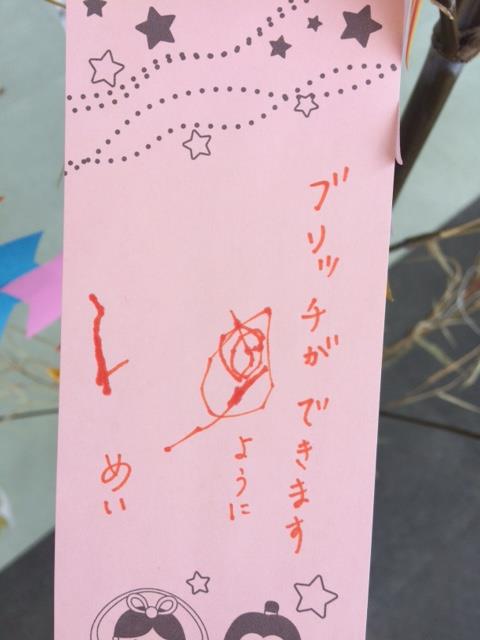 ブリッチが できます
ように
めい